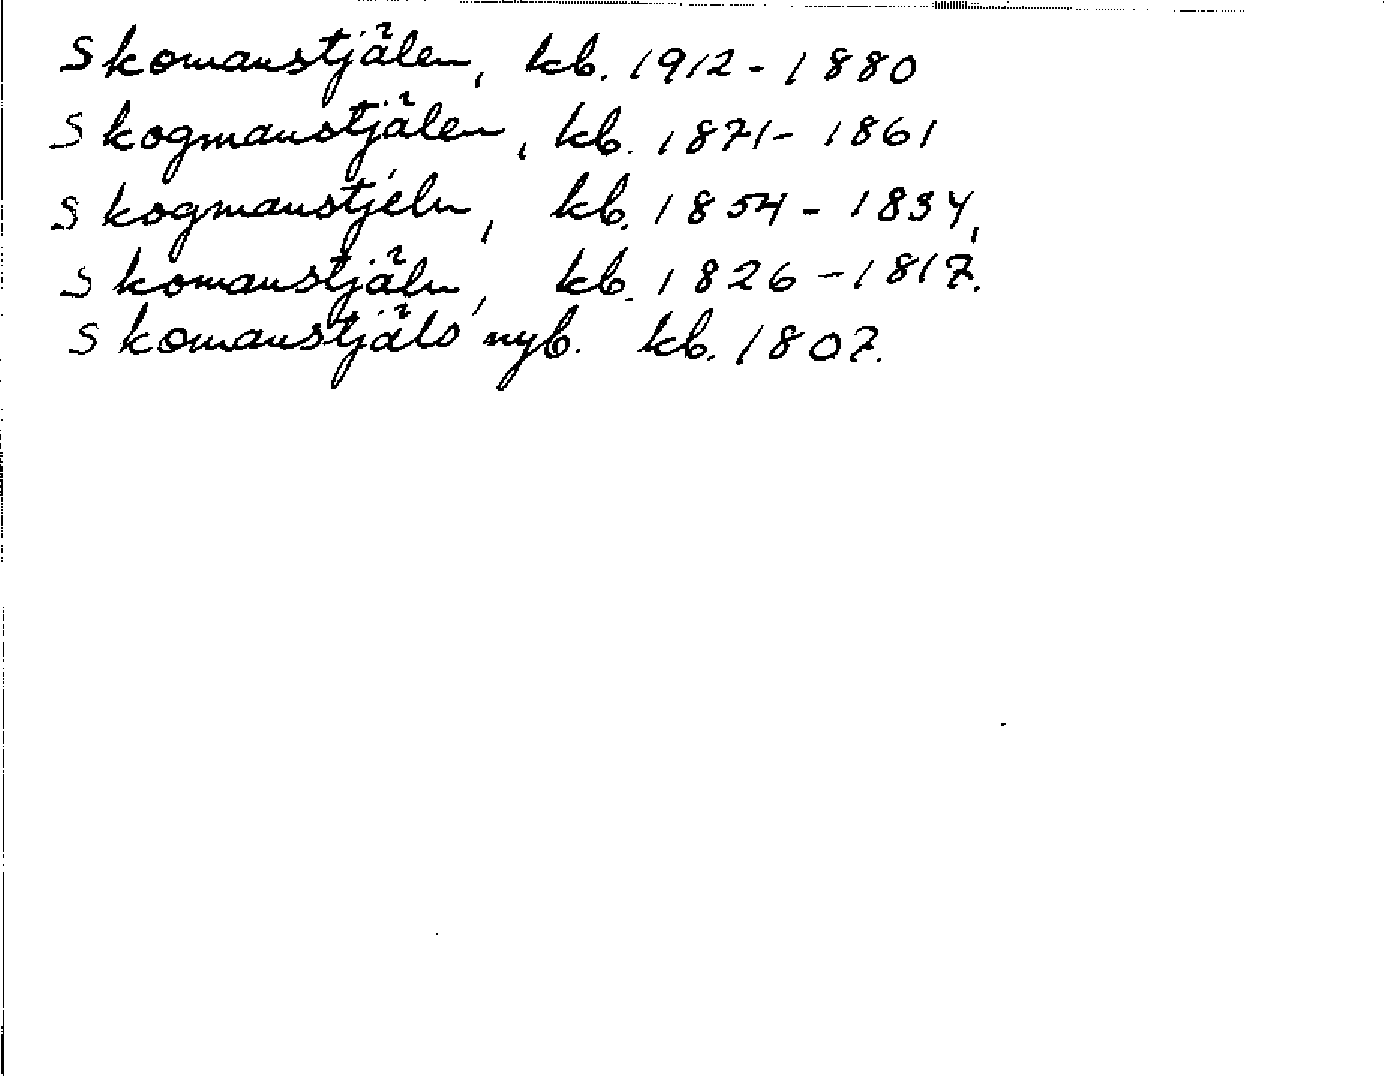 Skomanstjälen, kb. 1912-1880
Skogmanstjälen, kb. 1871-1861
Skogmanstjeln, kb. 1854-1834,
Skomanstjäln, kb. 1826-1817.
Skomanstjäls nyb. kb. 1807.